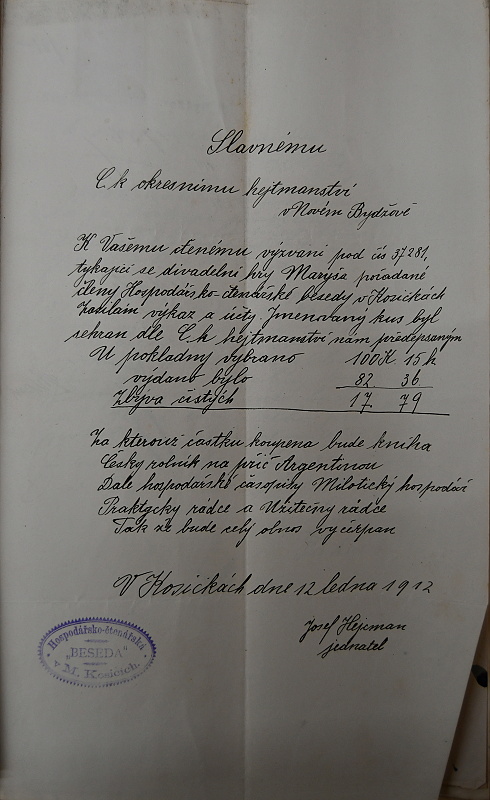 Slavnému
C. k okresnímu hejtmanství
v Novém Bydžově
K Vašemu čtenému vyzvani pod čís 37281,
tykající se divadelní hry Maryša pořadané
členy Hospodářsko-čtenářské besedy v Kosičkách
Zasílám výkaz a účty. Jmenovaný kus byl
sehran dle C. k hejtmanství nám předepsaným
U pokladny vybráno 100 K 15 h
vydano bylo 82 36
Zbýva čistých 17 79
Za kterouž častku koupena bude kniha
Česky rolník na příč Argentinou
Dale hospodářské časopisy Milotický hospodář
Praktycky rádce a Užitečny rádce
Tak že bude celý obnos vyčerpan
V Kosičkách dne 12 ledna 1912
Josef Hejcman
jednatel
Hospodářsko-čtenářská
„BESEDA"
v M. Kosicích.